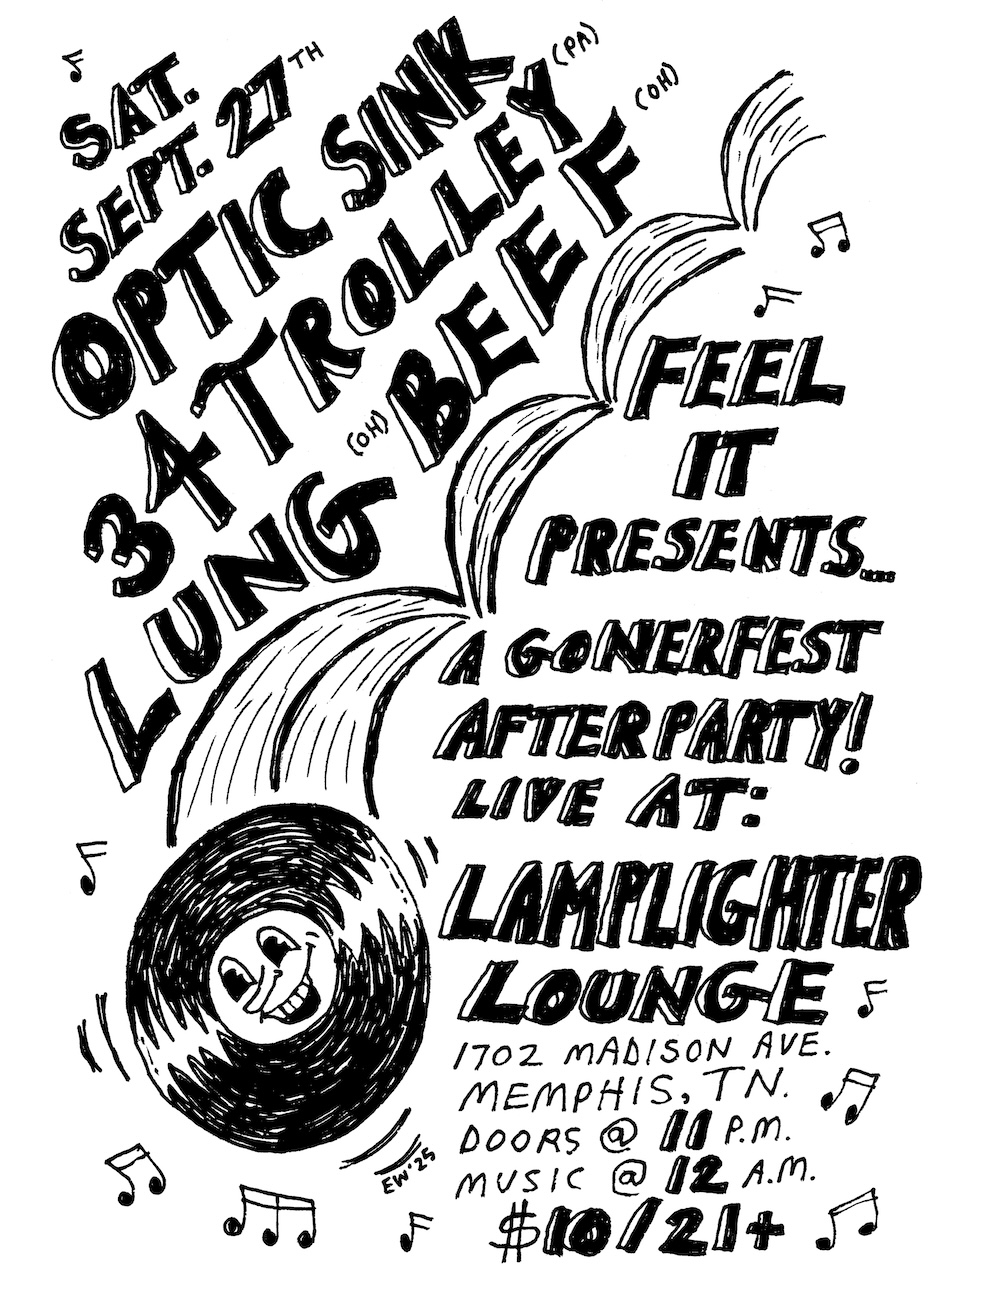 SAT.
SEPT. 27TH
OPTIC SINK
34 TROLLEY (PA)
LUNG (OH) BEEF (OH)
FEEL
IT
PRESENTS...
A GONERFEST
AFTER PARTY!
LIVE AT:
LAMPLIGHTER
LOUNGE
1702 MADISON AVE.
MEMPHIS, TN.
DOORS @ 11 P.M.
MUSIC @ 12 A.M.
$10/21+
EW '25